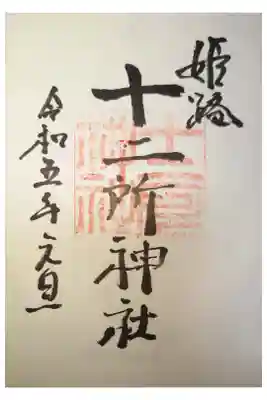 姫路
十二所神社
令和五年元旦